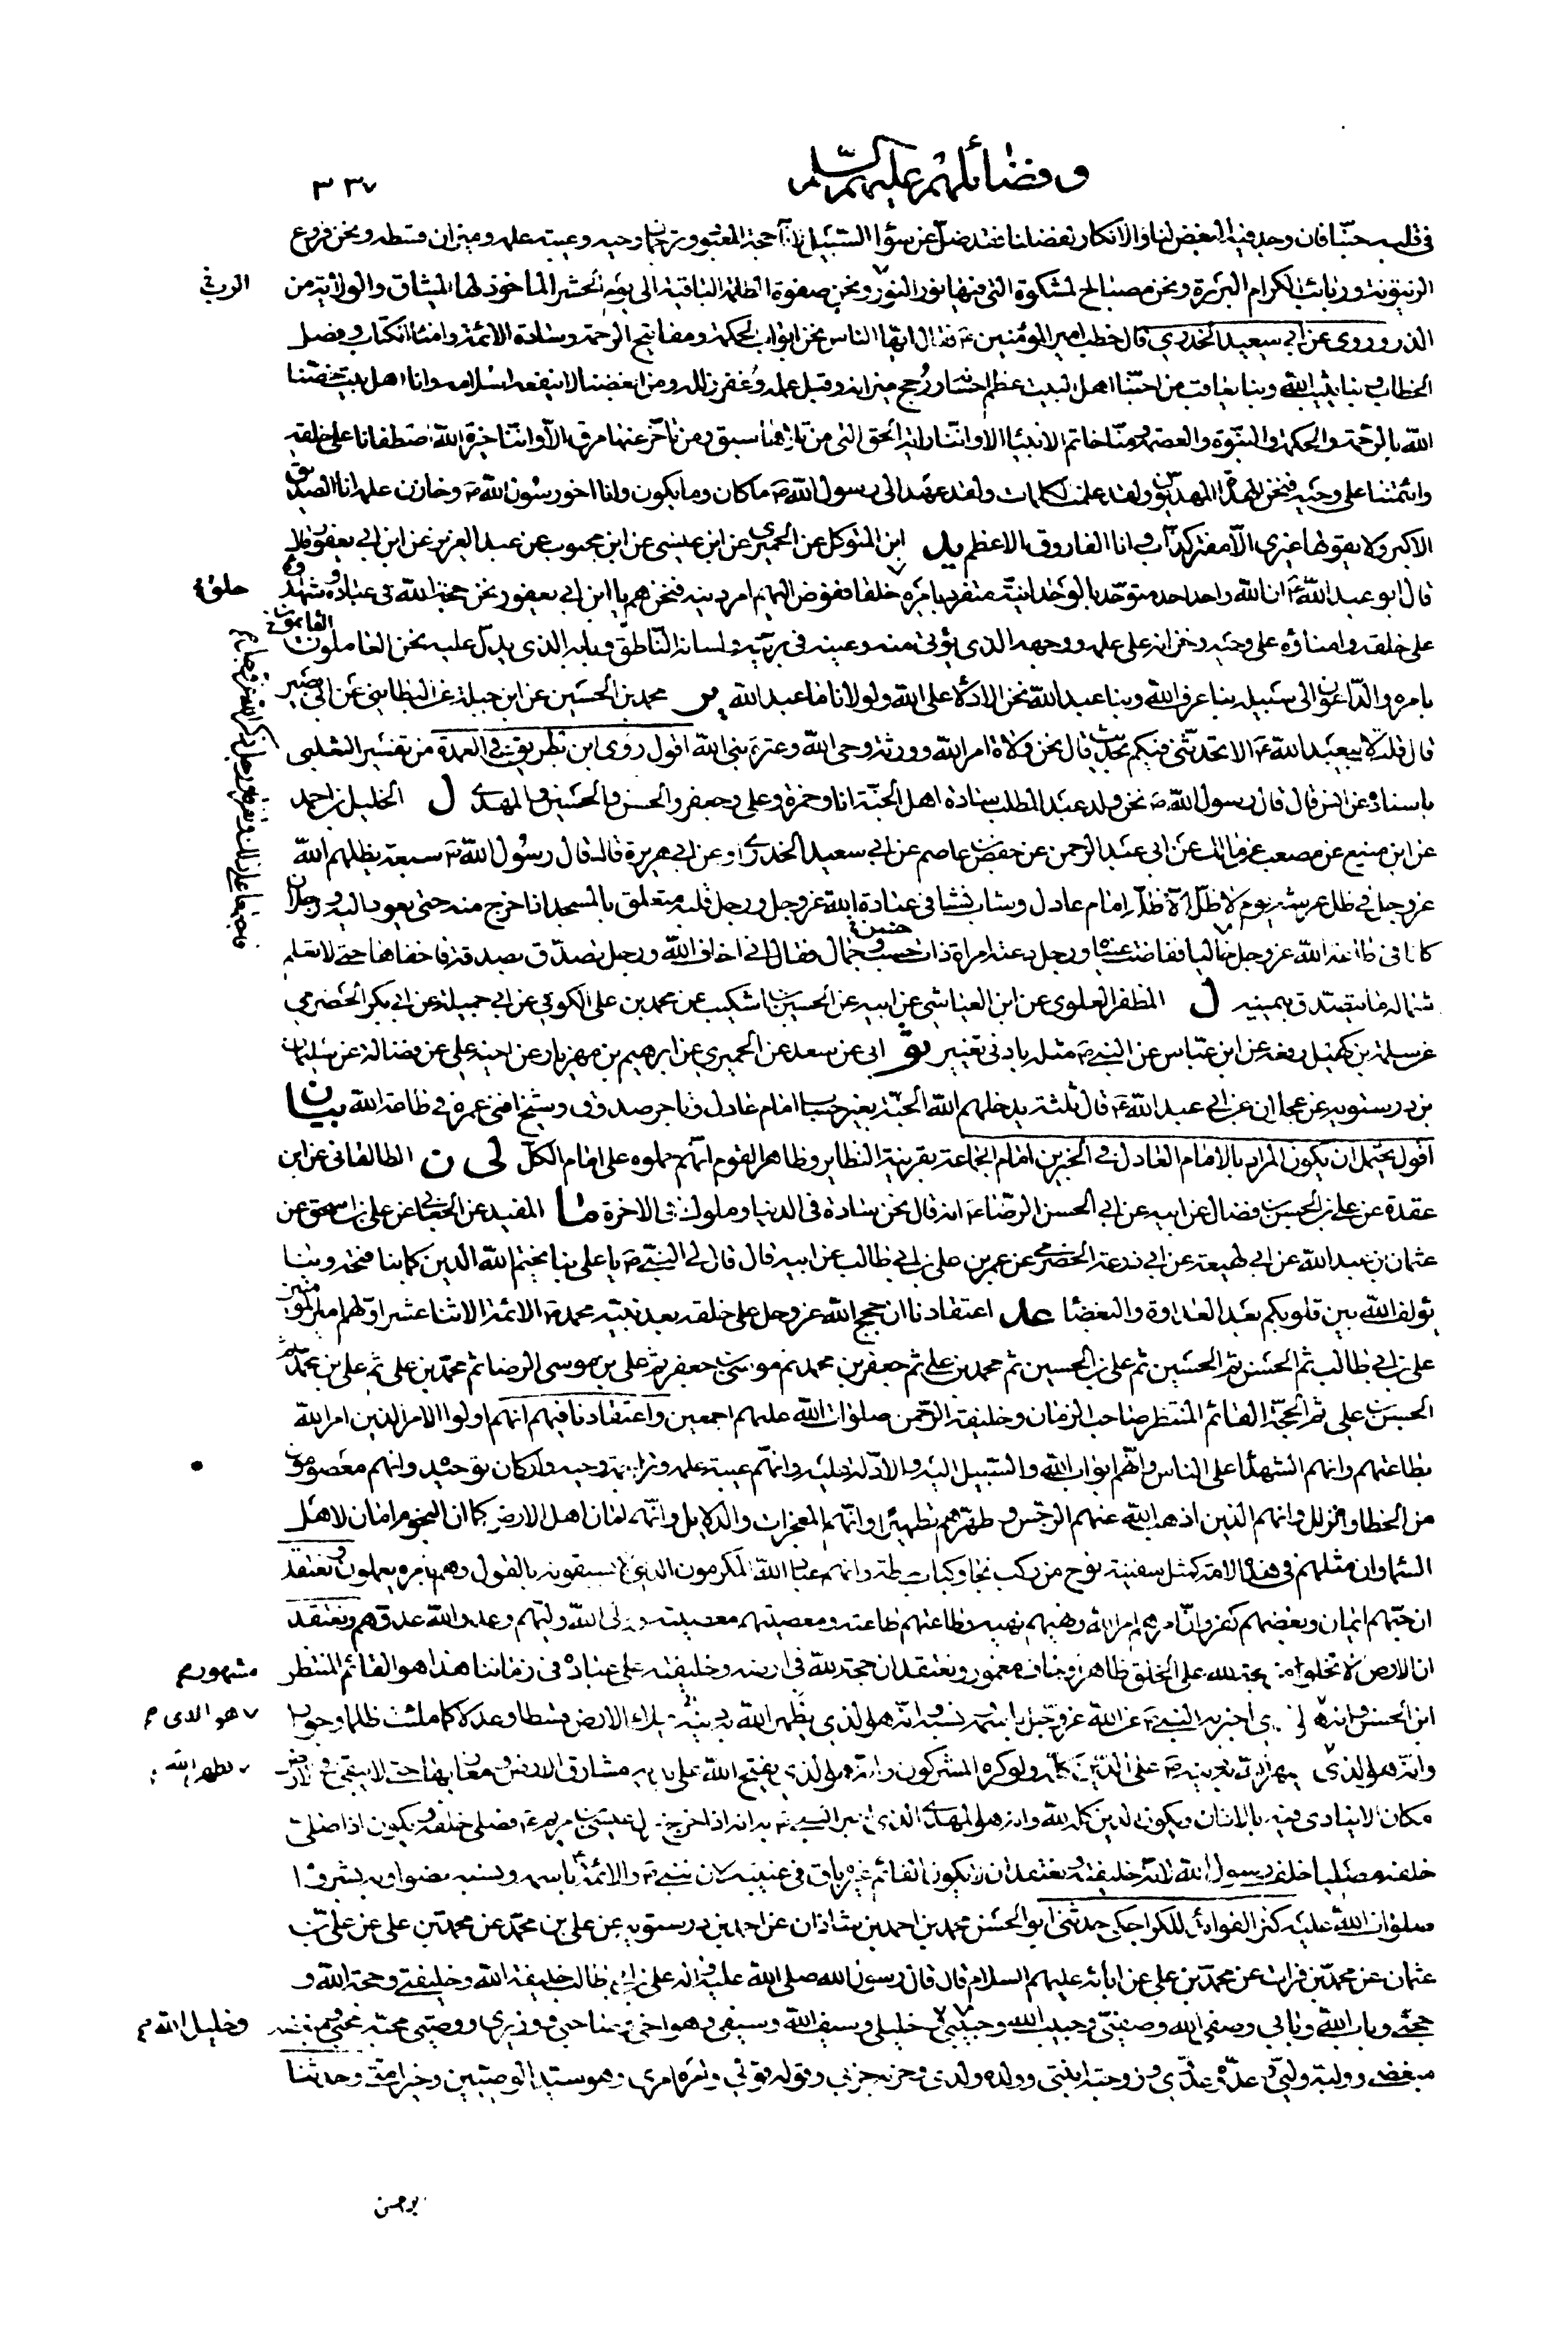 وفضائلهم عليهم السلم
٣٣٧
في قلبه حبنا فان وجد فيه البغض لنا والانكار لفضلنا فقد ضل عن سواء السبيل لانا حجة المعبود وترجمان وحيه وعيبة علمه وميزان قسطه ونحن فروع
الزيتونة وربائب الكرام البررة ونحن مصباح المشكوة التي فيها نور النور ونحن صفوة الكلمة الباقية الى يوم الحشر الماخوذ لها الميثاق والولاية من
الذر وروى عن ابي سعيد الخدري قال خطب امير المؤمنين ع فقال ايها الناس نحن ابواب الحكمة ومفاتيح الرحمة وسادة الائمة وامناء الكتاب وفصل
الخطاب وبنا يثيب الله وبنا يعاقب من احبنا اهل البيت عظم احسانه ورجح ميزانه وقبل عمله وغفر زلله ومن ابغضنا لا ينفعه اسلامه وانا اهل بيت خصنا
الله بالرحمة والحكمة والنبوة والعصمة ومنا خاتم الانبياء الا وانا راية الحق التي من تلاها سبق ومن تاخر عنها مرق الا واننا خيرة الله اصطفانا على خلقه
وائتمننا على وحيه فنحن الهداة المهديون ولقد علمت الكلمات ولقد عهد الى رسول الله ص ما كان وما يكون وانا اخو رسول الله ص وخازن علمه انا الصديق
الاكبر ولا يقولها غيري الا مفتر كذاب وانا الفاروق الاعظم يد ابن المتوكل عن الحميري عن ابن عيسى عن ابن محبوب عن عبد العزيز عن ابن ابي يعفور قال
قال ابو عبد الله ع ان الله واحد احد متوحد بالوحدانية متفرد بامره خلق خلقا ففوض اليهم امر دينه فنحن هم يا ابن ابي يعفور نحن حجة الله في عباده وشهداؤه
على خلقه وامناؤه على وحيه وخزانه على علمه ووجهه الذي يؤتى منه وعينه في بريته ولسانه الناطق وبابه الذي يدل عليه نحن العاملون
بامره والداعون الى سبيله بنا عرف الله وبنا عبد الله نحن الادلاء على الله ولولانا ما عبد الله ير محمد بن الحسين عن ابن جبلة عن البطايني عن ابي بصير
قال قلت لابي عبد الله ع الا تحدثني فيكم بحديث قال نحن ولاة امر الله وورثة وحي الله وعترة نبي الله اقول روى ابن بطريق في العمدة من تفسير الثعلبي
باسناده عن انس قال قال رسول الله ص نحن ولد عبد المطلب سادة اهل الجنة انا وحمزة وعلي وجعفر والحسن والحسين والمهدي ل الخليل بن احمد
عن ابن منيع عن مصعب عن مالك عن ابي عبد الرحمن عن حفص بن عاصم عن ابي سعيد الخدري او عن ابي هريرة قال قال رسول الله ص سبعة يظلهم الله
عز وجل في ظل عرشه يوم لا ظل الا ظله امام عادل وشاب نشا في عبادة الله عز وجل ورجل قلبه متعلق بالمسجد اذا خرج منه حتى يعود اليه ورجلان
كانا في طاعة الله عز وجل خاليا ففاضت عيناه ورجل دعته امراة ذات حسب وجمال فقال اني اخاف الله ورجل تصدق بصدقة فاخفاها حتى لا تعلم
شماله ما يتصدق بيمينه ل المظفر العلوي عن ابن العياشي عن ابيه عن الحسين بن اشكيب عن محمد بن علي الكوفي عن ابي جميلة عن ابي بكر الحضرمي
عن سلمة بن كهيل رفعه عن ابن عباس عن النبي ص مثله بادنى تغيير ثو ابي عن سعد عن الحميري عن ابرهيم بن مهزيار عن اخيه علي عن فضالة عن سليمان
بن درستويه عن عجلان عن ابي عبد الله ع قال ثلثة يدخلهم الله الجنة بغير حساب امام عادل وتاجر صدوق وشيخ افنى عمره في طاعة الله بيان
اقول يحتمل ان يكون المراد بالامام العادل في الخبرين امام الجماعة بقرينة النظاير وظاهر القوم انهم حملوه على امام الكل لى ن الطالقاني عن ابن
عقدة عن علي بن الحسن بن فضال عن ابيه عن ابي الحسن الرضا ع انه قال نحن سادة في الدنيا وملوك في الاخرة ما المفيد عن الجعابي عن علي بن اسحق عن
عثمان بن عبد الله عن ابي لهيعة عن ابي زرعة الحضرمي عن عمر بن علي بن ابي طالب عن ابيه قال قال لي النبي ص يا علي بنا يختم الله الدين كما بنا فتحه وبنا
يؤلف الله بين قلوبكم بعد العداوة والبغضاء عد اعتقادنا ان حجج الله عز وجل على خلقه بعد نبيه محمد ص الائمة الاثنا عشر اولهم امير المؤمنين
علي بن ابي طالب ثم الحسن ثم الحسين ثم علي بن الحسين ثم محمد بن علي ثم جعفر بن محمد ثم موسى بن جعفر ثم علي بن موسى الرضا ثم محمد بن علي ثم علي بن محمد ثم
الحسن بن علي ثم الحجة القائم المنتظر صاحب الزمان وخليفة الرحمن صلوات الله عليهم اجمعين واعتقادنا فيهم انهم اولوا الامر الذين امر الله
بطاعتهم وانهم الشهداء على الناس وانهم ابواب الله والسبيل اليه والادلة عليه وانهم عيبة علمه وتراجمة وحيه واركان توحيده وانهم معصومون
من الخطا والزلل وانهم الذين اذهب الله عنهم الرجس وطهرهم تطهيرا وان لهم المعجزات والدلايل وانهم امان اهل الارض كما ان النجوم امان لاهل
السماء وان مثلهم في هذه الامة كمثل سفينة نوح من ركب نجا وكباب حطة وانهم عباد الله المكرمون الذين لا يسبقونه بالقول وهم بامره يعملون ونعتقد
ان حبهم ايمان وبغضهم كفر وان امرهم امر الله ونهيهم نهيه وطاعتهم طاعته ومعصيتهم معصيته وولي الله وليهم وعدو الله عدوهم ونعتقد
ان الارض لا تخلو من حجة لله على الخلق ظاهر او خاف مغمور ونعتقد ان حجة الله في ارضه وخليفته على عباده في زماننا هذا هو القائم المنتظر
ابن الحسن وانه الذي اخبر به النبي ص عن الله عز وجل باسمه ونسبه وانه هو الذي يظهر الله به دينه يملاء الارض قسطا وعدلا كما ملئت ظلما وجورا
وانه هو الذي يظهر الله به دينه ص على الدين كله ولو كره المشركون وانه هو الذي يفتح الله على يديه مشارق الارض ومغاربها حتى لا يبقى في الارض
مكان الا ينادى فيه بالاذان ويكون الدين كله لله وانه هو المهدي الذي اخبر النبي ص به انه اذا خرج نزل عيسى بن مريم ع فصلى خلفه ويكون اذا صلى
خلفه مصليا خلف رسول الله لانه خليفته ونعتقد ان لا يكون القائم غيره باق في غيبته لان النبي ص والائمة باسمه ونسبه نصوا وبه بشروا
صلوات الله عليه كنز الفوائد للكراجكي حدثني ابو الحسن محمد بن احمد بن شاذان عن احمد بن درستويه عن علي بن محمد عن محمد بن علي عن علي بن
عثمان عن محمد بن فرات عن محمد بن علي عن ابائه عليهم السلام قال قال رسول الله صلى الله عليه واله علي بن ابي طالب خليفة الله وخليفتي وحجة الله و
حجتي وباب الله وبابي وصفي الله وصفيي وحبيب الله وحبيبي خليلي وسيف الله وسيفي وهو اخي وصاحبي ووزيري ووصيي محبه محبي ومبغضه
مبغضي ووليه وليي وعدوه عدوي وزوجته ابنتي وولده ولدي وحزبه حزبي وقوله قولي وامره امري وهو سيد الوصيين وخير امتي وحدثنا
خلق
القائمون
مشهور
هو الذي
يظهر الله
وخليل الله